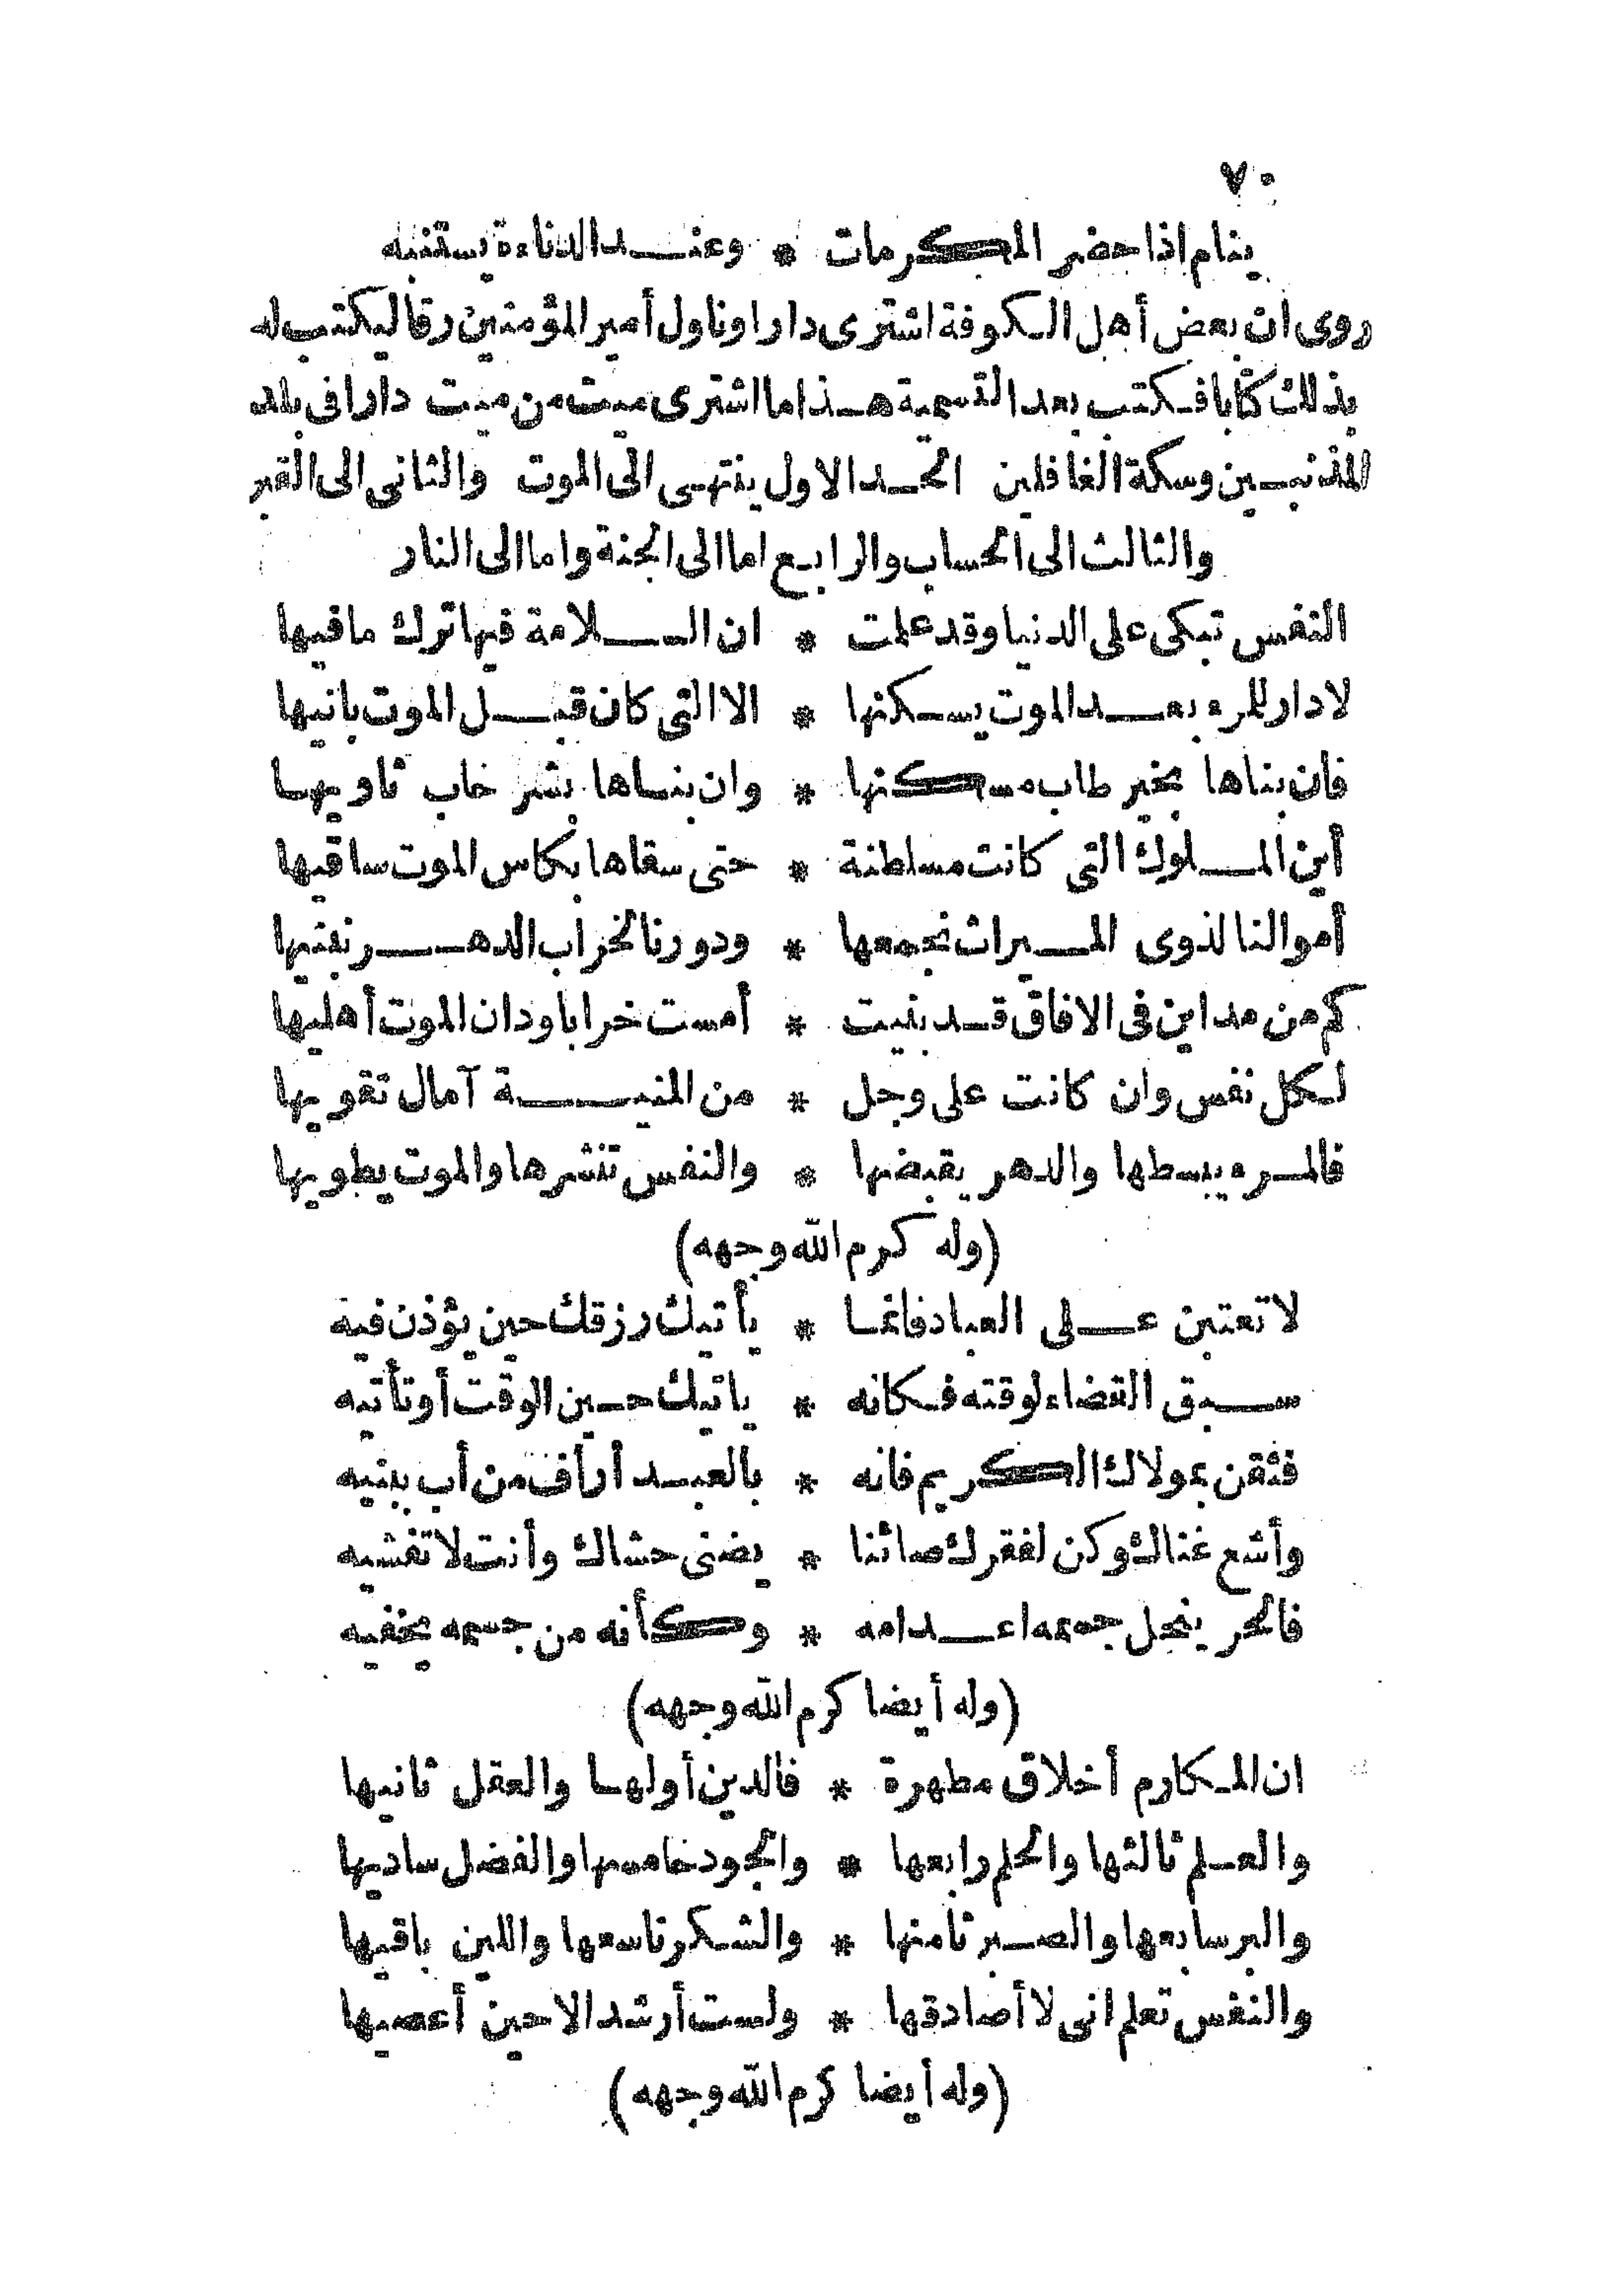 ٧٠
ينام اذا حضر المكرمات * وعند الدناءة يستنبه
روى ان بعض أهل الكوفة اشترى دارا وناول أمير المؤمنين رقا ليكتب له
بذلك كتابا فكتب بعد التسمية هذا ما اشترى ميت من ميت دارا فى بلد
المذنبين وسكة الغافلين الحد الاول ينتهى الى الموت والثانى الى القبر
والثالث الى الحساب والرابع اما الى الجنة واما الى النار
النفس تبكى على الدنيا وقد علمت * ان السلامة فيها ترك ما فيها
لا دار للمرء بعد الموت يسكنها * الا التى كان قبل الموت بانيها
فان بناها بخير طاب مسكنها * وان بناها بشر خاب ثاويها
أين الملوك التى كانت مسلطنة * حتى سقاها بكاس الموت ساقيها
أموالنا لذوى الميراث نجمعها * ودورنا لخراب الدهر نبنيها
كم من مداين فى الافاق قد بنيت * أمست خرابا ودان الموت أهليها
لكل نفس وان كانت على وجل * من المنية آمال تقويها
فالمرء يبسطها والدهر يقبضها * والنفس تنشرها والموت يطويها
(وله كرم الله وجهه)
لا تعتبن على العباد فانما * يأتيك رزقك حين يؤذن فيه
سبق القضاء لوقته فكانه * ياتيك حين الوقت أو تأتيه
فثقن بمولاك الكريم فانه * بالعبد أرأف من أب ببنيه
وأشع غناك وكن لفقرك صائنا * يضنى حشاك وأنت لا تفشيه
فالحر ينحل جسمه اعدامه * وكأنه من جسمه يخفيه
(وله أيضا كرم الله وجهه)
ان المكارم أخلاق مطهرة * فالدين أولها والعقل ثانيها
والعلم ثالثها والحلم رابعها * والجود خامسها والفضل ساديها
والبر سابعها والصبر ثامنها * والشكر تاسعها واللين باقيها
والنفس تعلم انى لا أصادقها * ولست أرشد الا حين أعصيها
(وله أيضا كرم الله وجهه)